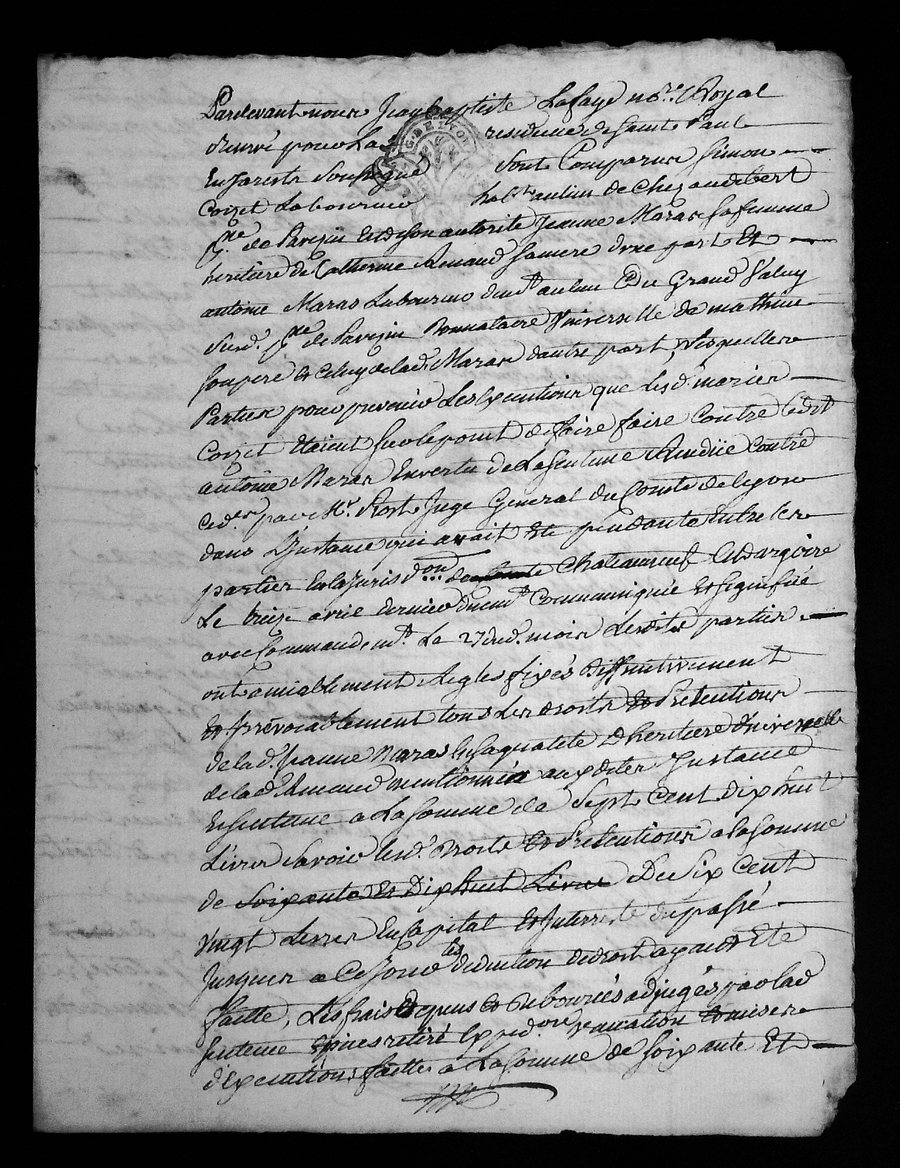 Pardevant nous Jean baptiste Lafaye no.re Royal
réservé pour la residence de Saint Paul
En Jarests Soussigné Sont Comparus Simon
Coizet Laboureur hab.tt au lieu de Chez audibert
p.sse de Pavezin et de son autorité Jeanne Maras sa femme
heritiere de Catherine Arnaud sa mere d'une part Et
antoine Maras Laboureur dem.t au lieu Du Grand Valuy
Susd. p.sse de Pavezin Donnataire Universelle de mathieu
son pere et Celuy de lad. Maras d'autre part, Lesquelles
Parties pour prevenir Les Executions que Lesd. mariés
Coizet Etaient sur le point de faire faire Contre Led.t
antoine Maras En vertu de La Sentence Rendüe Contre
Ced.er par M.r Juge General du Comté de Lyon
dans L'Instance qui avait Eté pendante Entre les
parties En la Juris.d.on de Chateauneuf Et dargoire
Le treize avril dernier duem.t Communiquée et signifiée
avec Commandem.t Le 27 dud. mois Lesdites parties
ont amiablement Regles fixés deffinitivement
et Irrévocablement tous Les droits et Prétentions
de lad. Jeanne Maras En sa qualité D'heritiere Universelle
de lad. Arnaud mentionnés auxdites Instance
En sentence a La somme de Sept Cent Dix huit
Livres savoir lesd. droits et Prétentions a la somme
de Soixante Et Dix huit Livres De Six Cent
vingt Livres En Capital et Interrets du passé
Jusques a Ce Jour les deduction de droit ayant Eté
faitte, Les frais Exposés et deboursés adjugés par lad.
sentence Exped.on et mises
d'Execution, faittes a La somme de Soixante Et